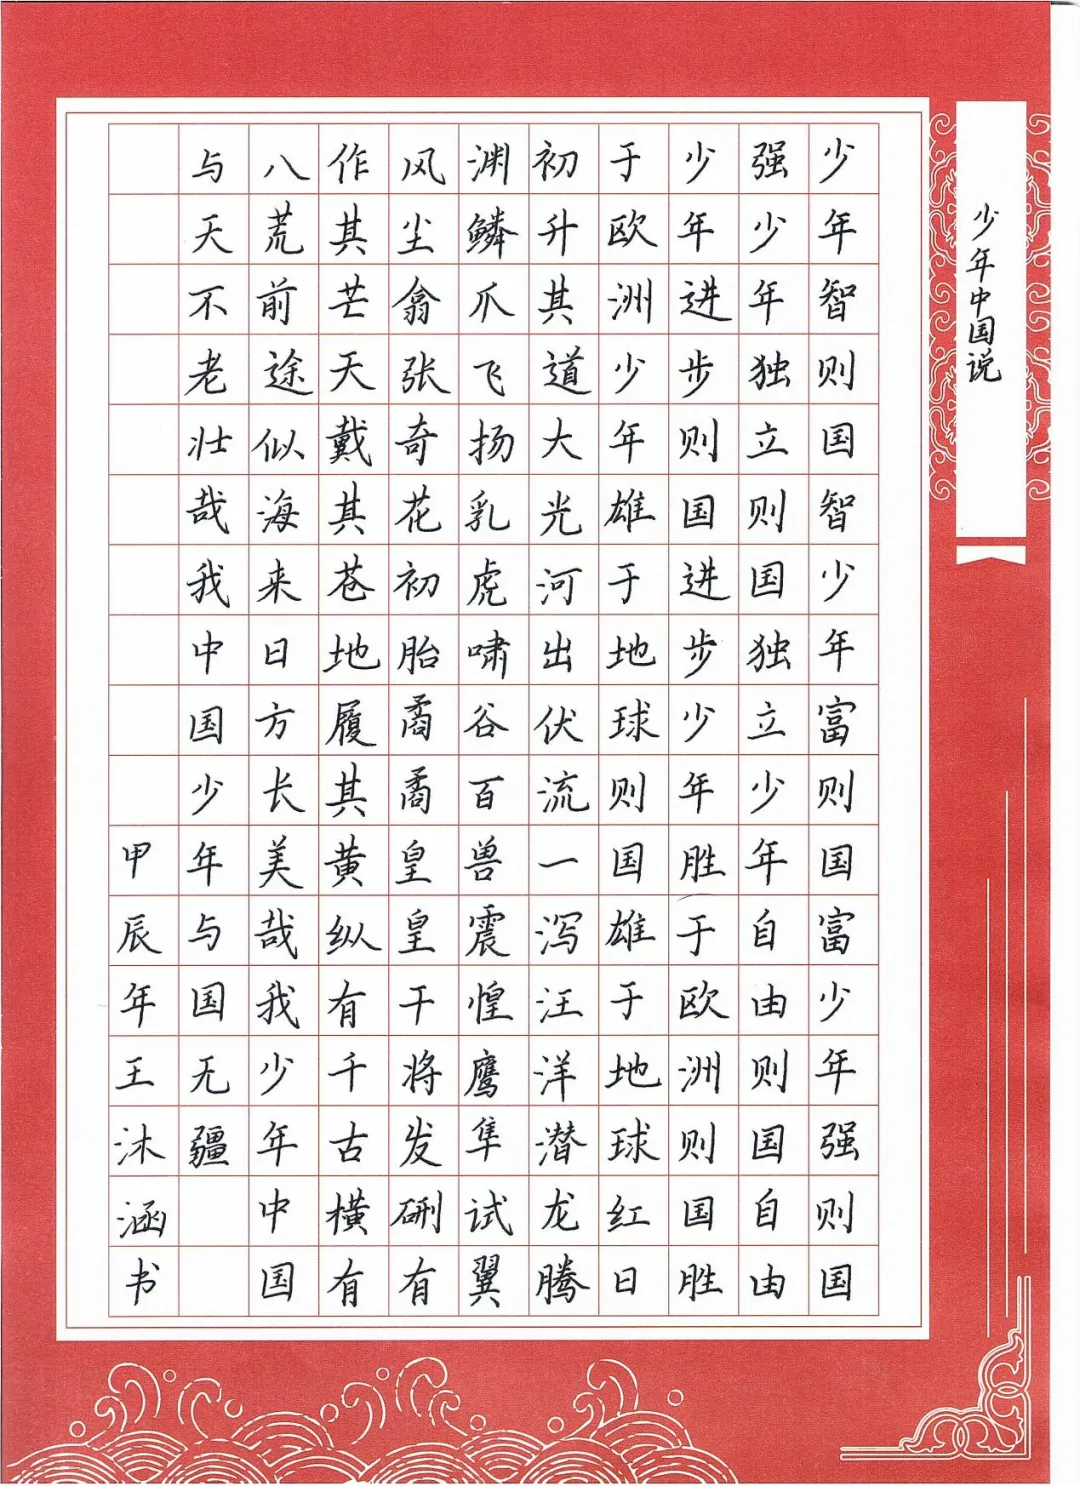 少年中国说
少年智则国智少年富则国富少年强则国
强少年独立则国独立少年自由则国自由
少年进步则国进步少年胜于欧洲则国胜
于欧洲少年雄于地球则国雄于地球红日
初升其道大光河出伏流一泻汪洋潜龙腾
渊鳞爪飞扬乳虎啸谷百兽震惶鹰隼试翼
风尘翕张奇花初胎矞矞皇皇干将发硎有
作其芒天戴其苍地履其黄纵有千古横有
八荒前途似海来日方长美哉我少年中国
与天不老壮哉我中国少年与国无疆
甲辰年王沐涵书